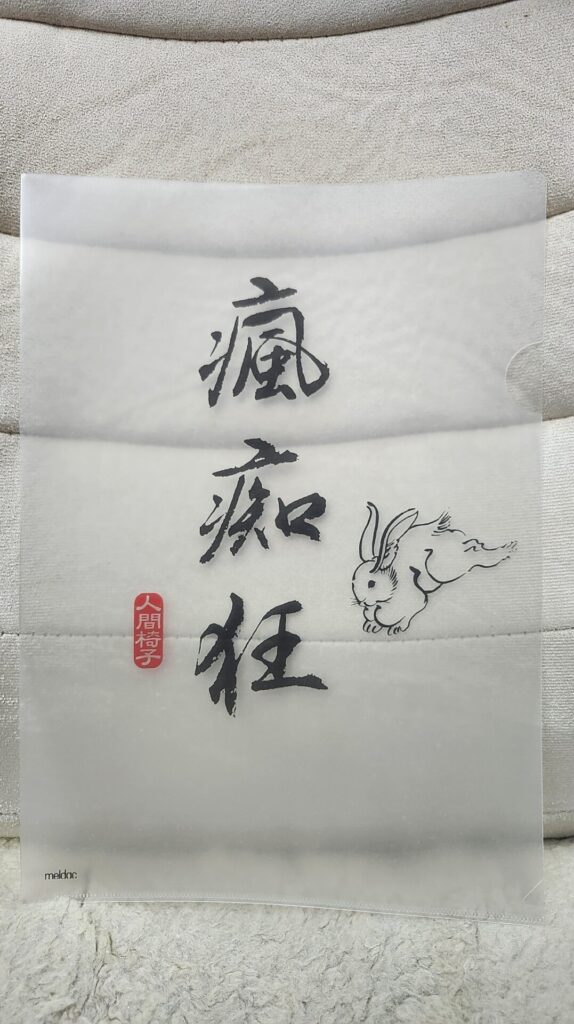 瘋痴狂
人間椅子
meldac